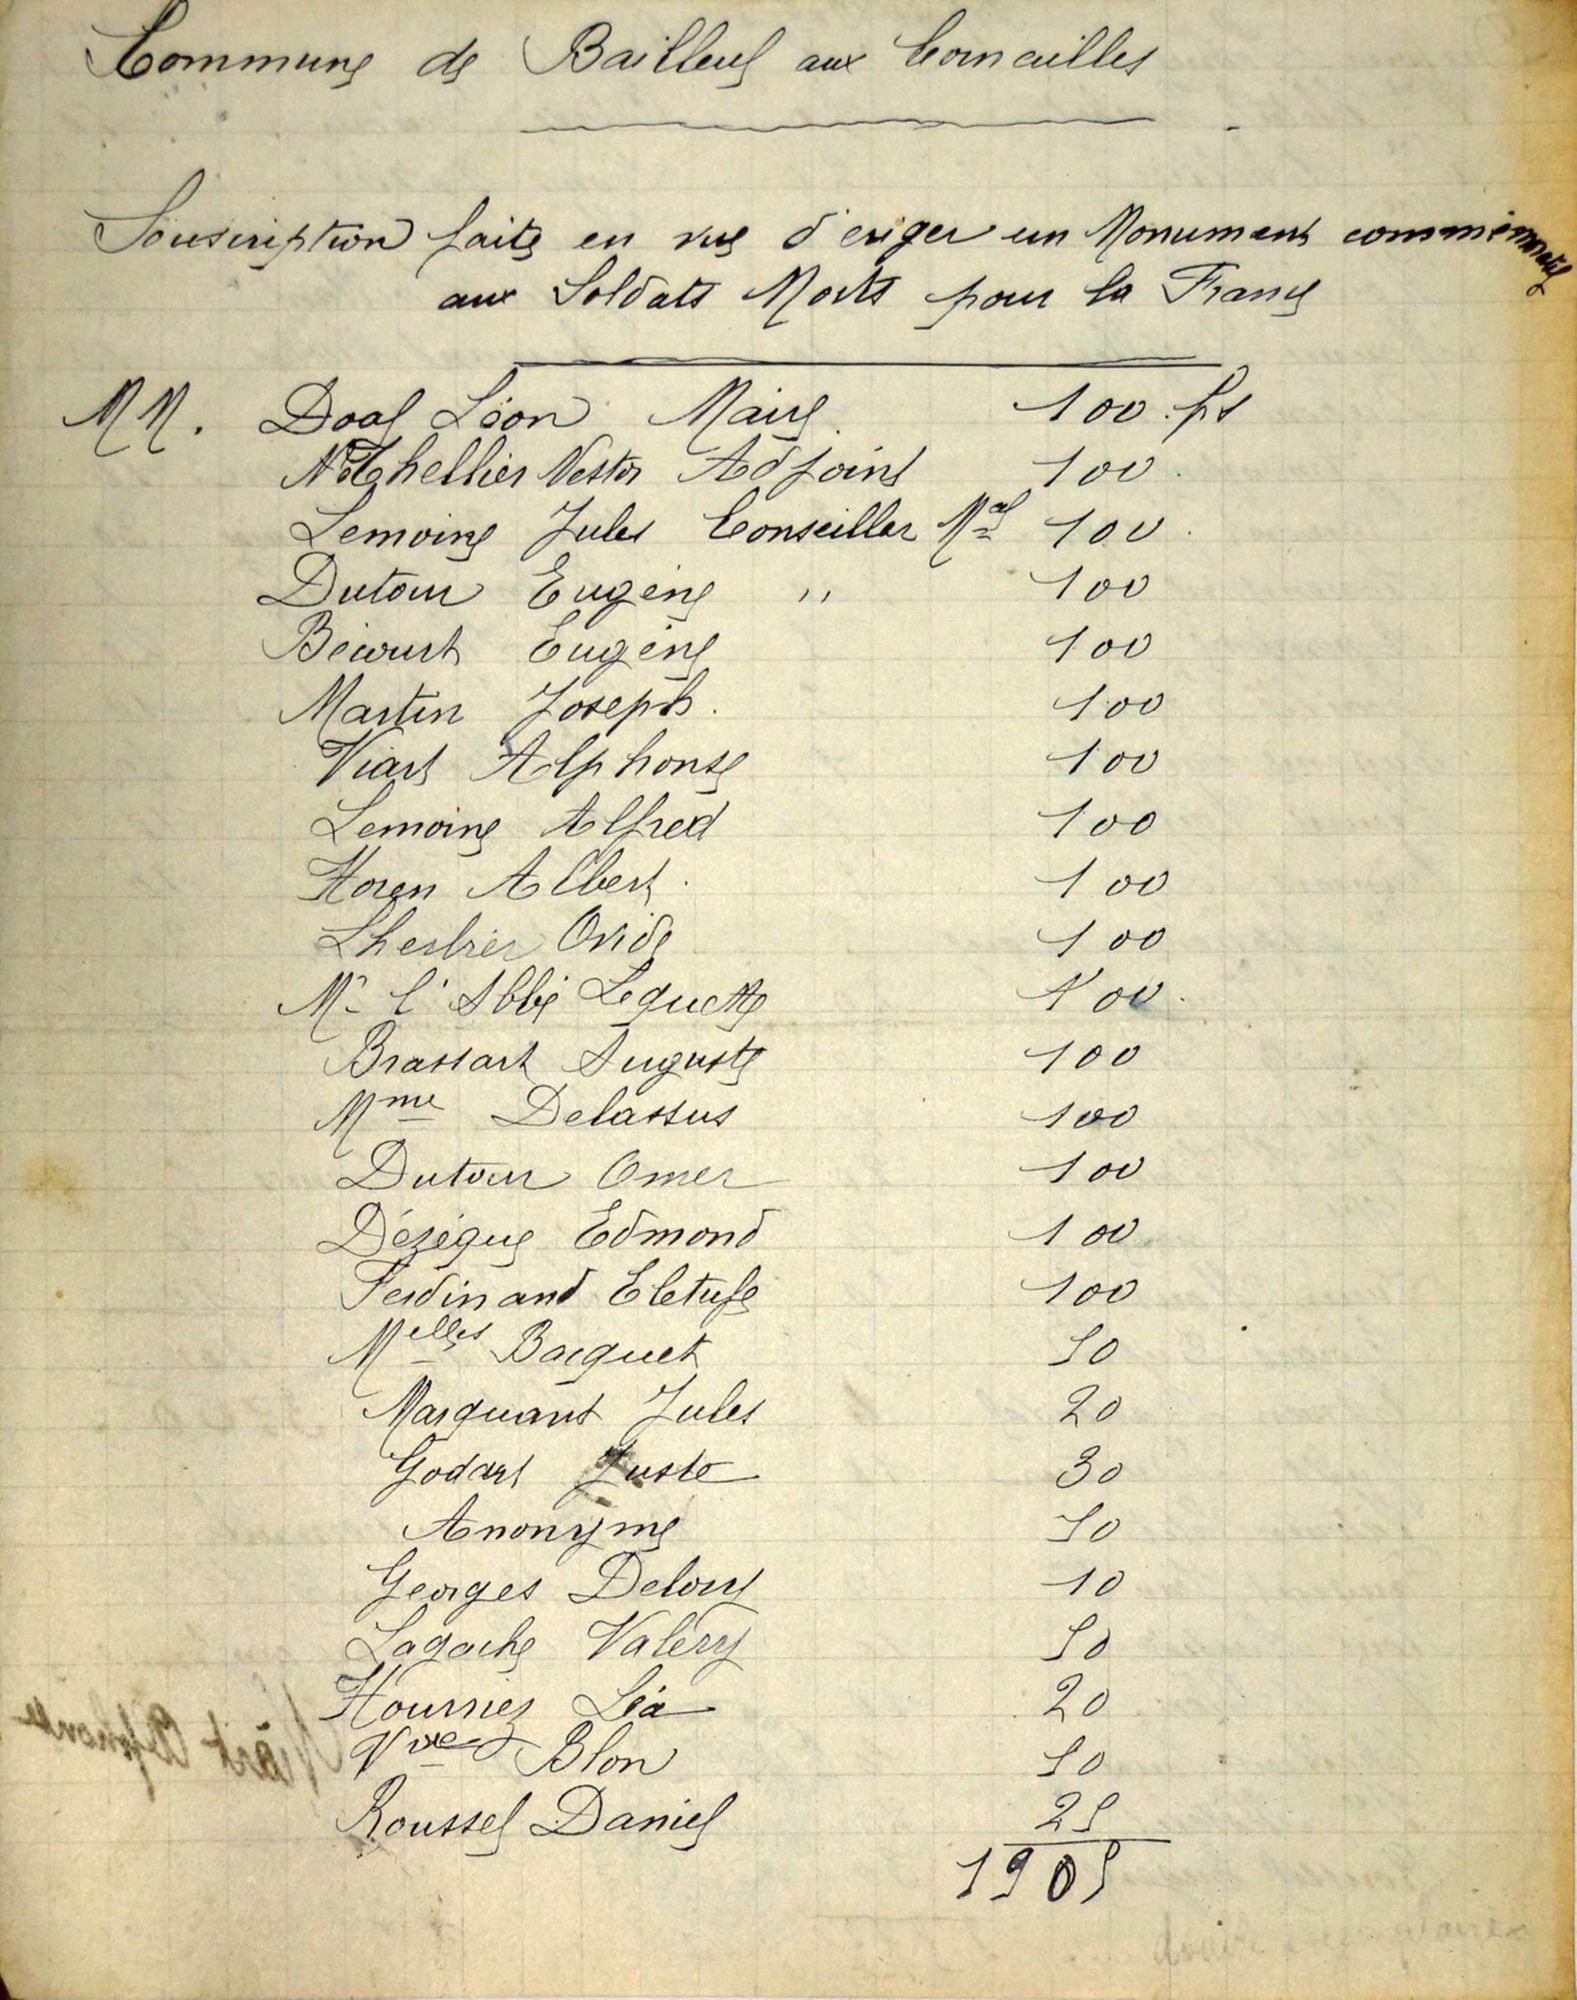 Commune de Bailleul aux Cornailles
Souscription faite en vue d'ériger un Monument commémoratif
aux Soldats Morts pour la France
MM. Doal Léon Maire 100 frs
Thellier Nestor Adjoint 100
Lemoine Jules Conseiller Mal 100
Dutour Eugène " 100
Bécourt Eugène 100
Martin Joseph 100
Viart Alphonse 100
Lemoine Alfred 100
Horen Albert 100
Lherbier Ovide 100
Mr l'Abbé Lequette 100
Brassart Auguste 100
Mme Delassus 100
Dutour Omer 100
Dézègue Edmond 100
Ferdinand 100
Melles Bacquet 50
Marquant Jules 20
Godart Juste 30
Anonyme 50
Georges Delory 10
Lagache Valéry 50
Hourriez Léa 20
Vve Blon 50
Roussel Daniel 25
1905